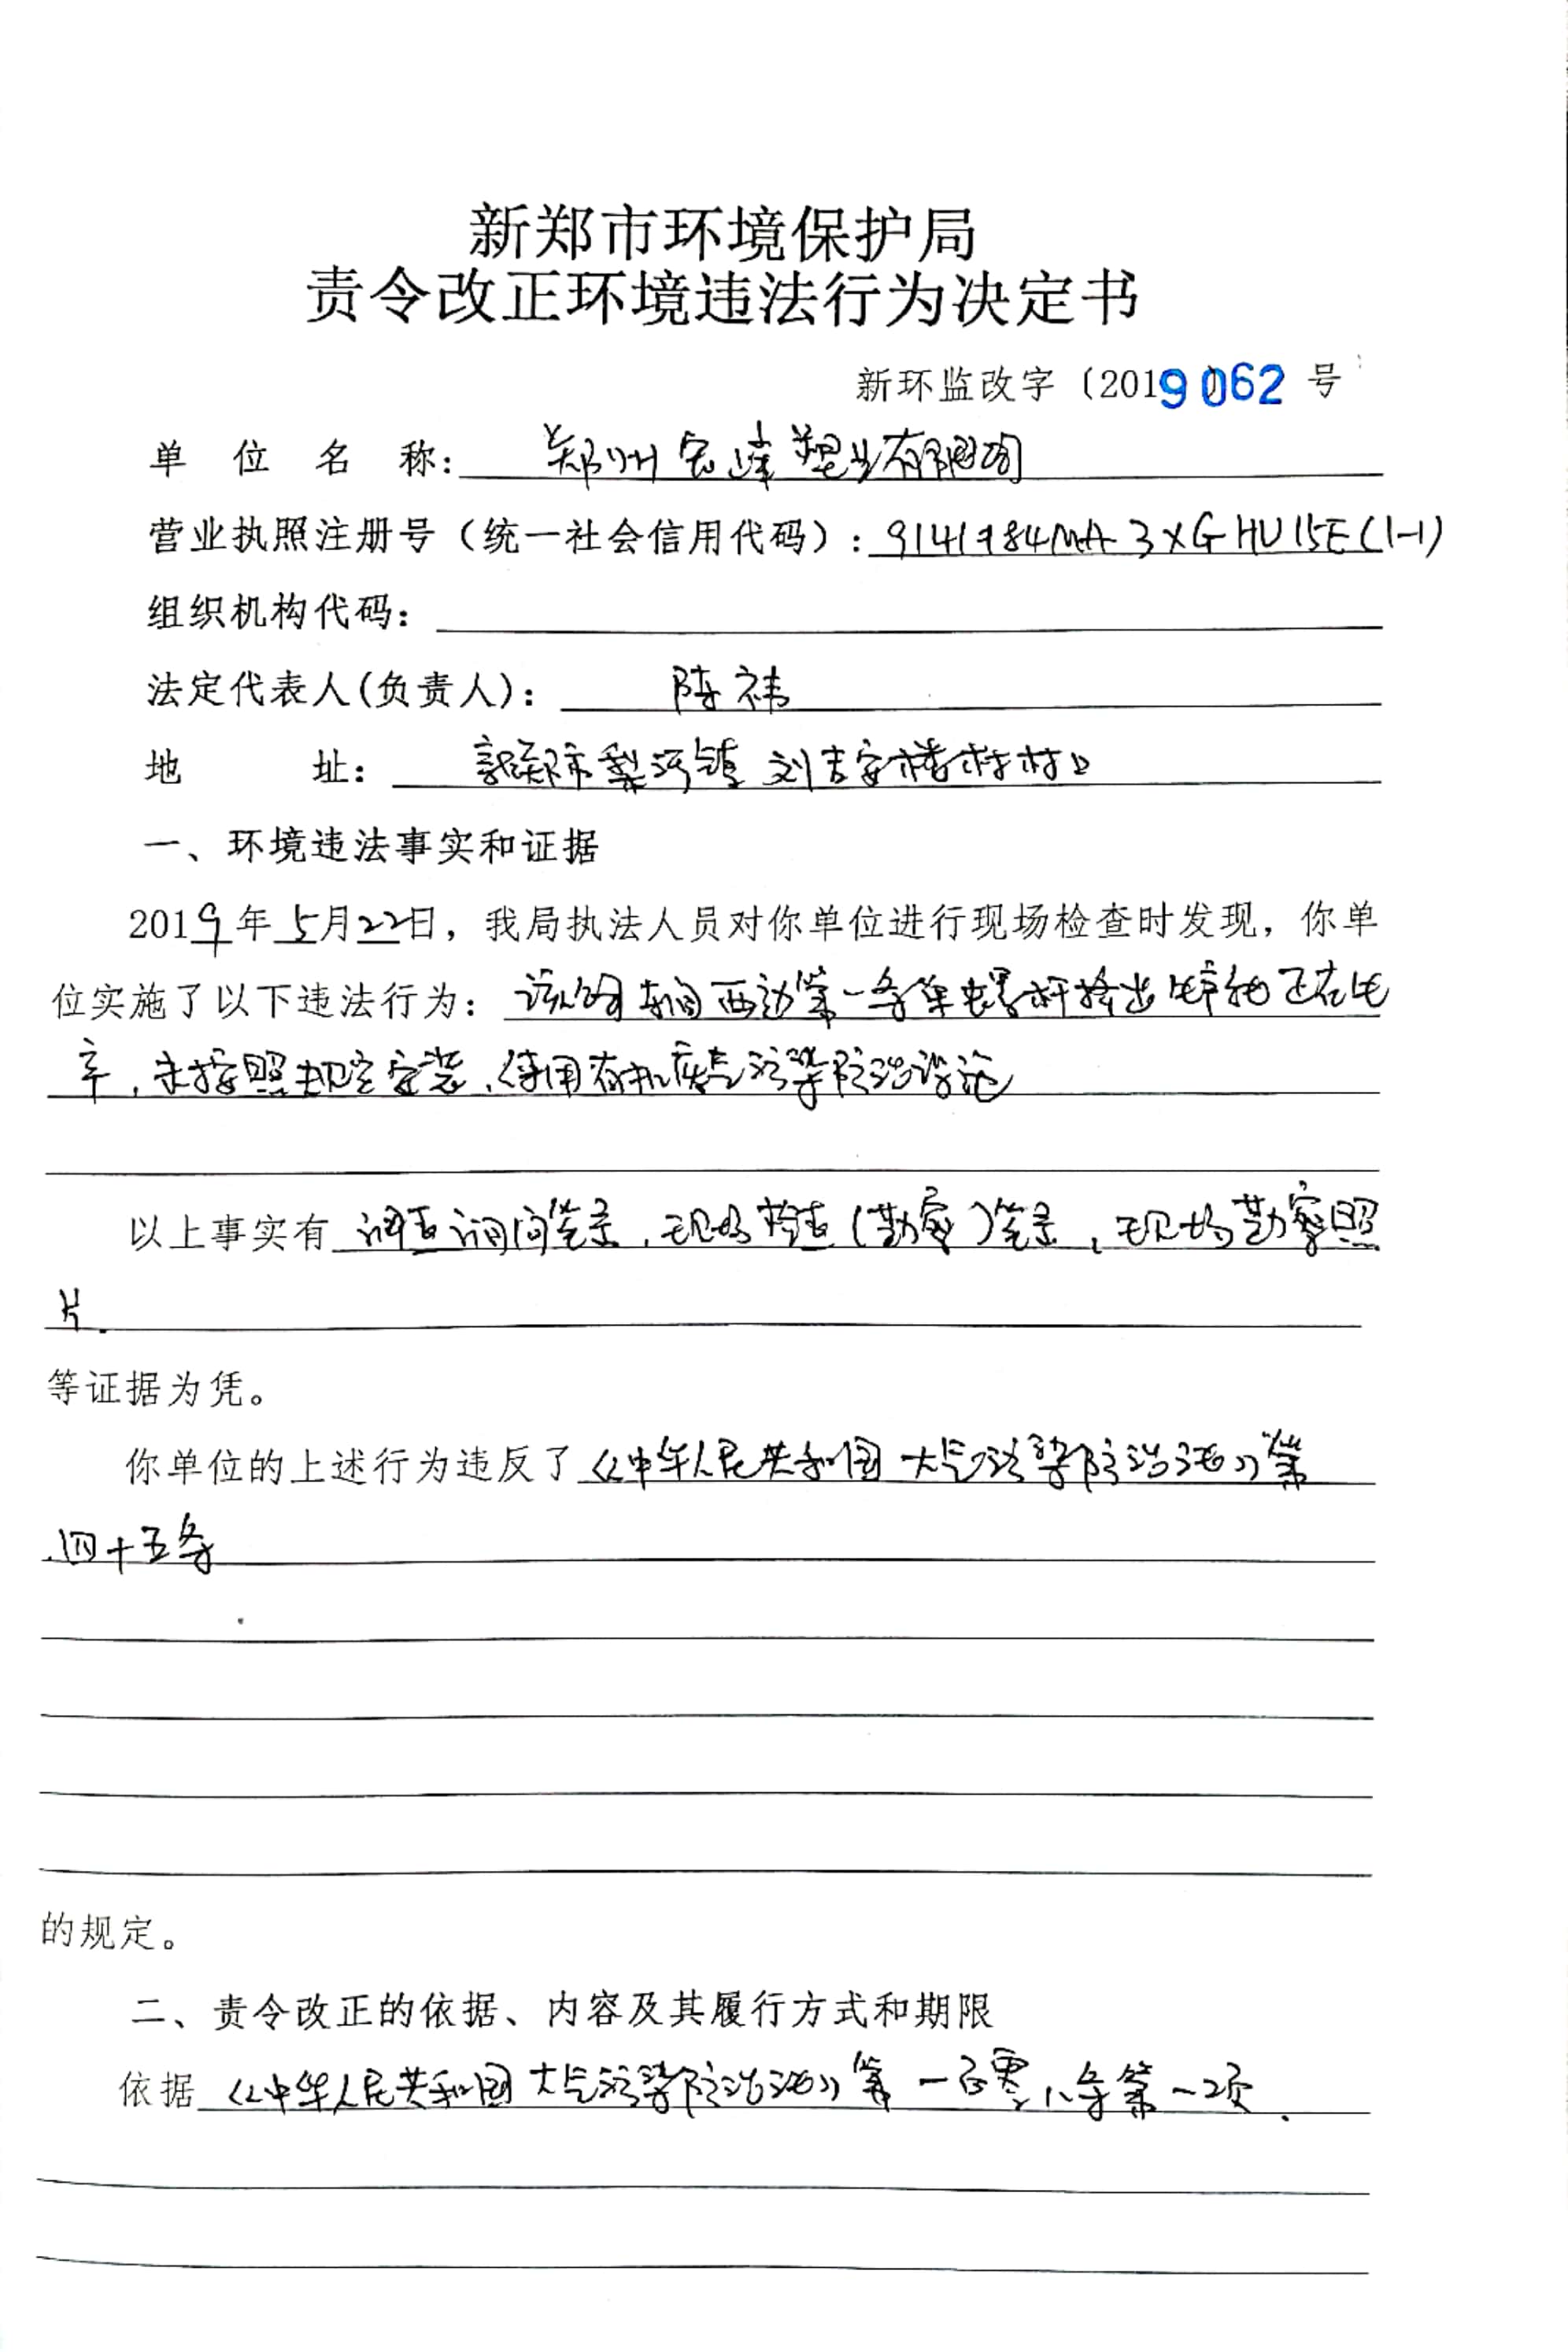 新郑市环境保护局
责令改正环境违法行为决定书
新环监改字〔2019〕062 号
单位名称：郑州宏达塑业有限公司
营业执照注册号（统一社会信用代码）：9141984MA3XGHU15E(1-1)
组织机构代码：
法定代表人(负责人)：陈祎
地址：新郑市梨河镇刘吉安楼村村口
一、环境违法事实和证据
2019年5月22日，我局执法人员对你单位进行现场检查时发现，你单
位实施了以下违法行为：该公司车间西边第一条单螺杆挤出生产线正在生
产，未按照规定安装、使用有机废气污染防治设施
以上事实有调查询问笔录，现场检查（勘察）笔录，现场勘察照
片.
等证据为凭。
你单位的上述行为违反了《中华人民共和国大气污染防治法》第
四十五条
的规定。
二、责令改正的依据、内容及其履行方式和期限
依据《中华人民共和国大气污染防治法》第一百零八条第一项.